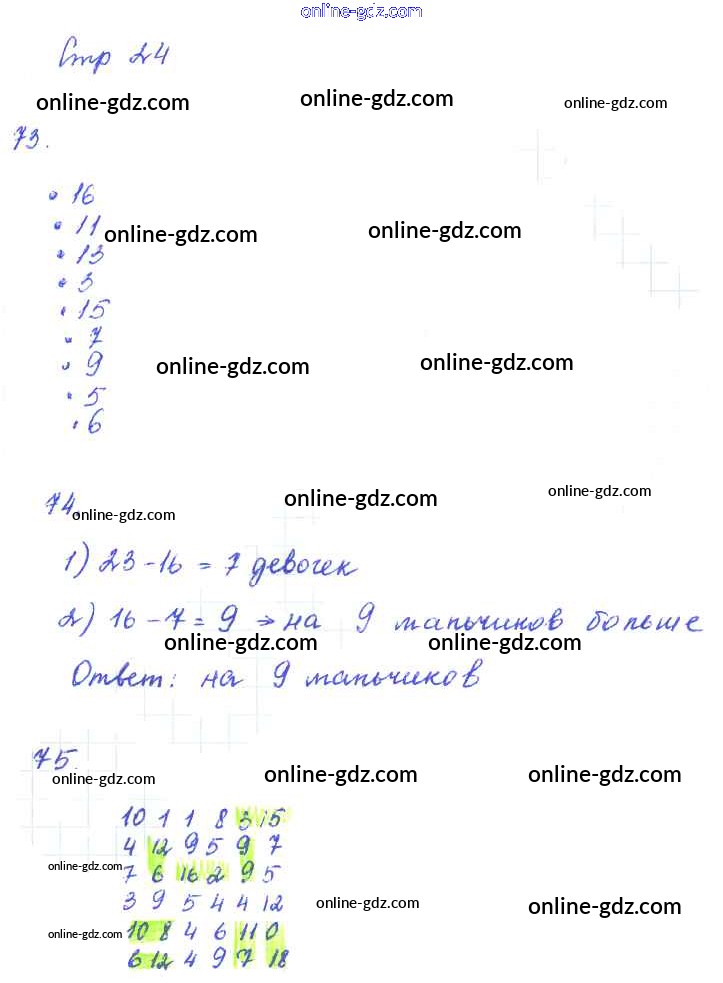 online-gdz.com
Стр 24
online-gdz.com online-gdz.com online-gdz.com
73.
• 16
• 11
online-gdz.com online-gdz.com
• 13
• 3
• 15
• 7
• 9
online-gdz.com online-gdz.com
• 5
• 6
74.
online-gdz.com online-gdz.com online-gdz.com
1) 23 - 16 = 7 девочек
2) 16 - 7 = 9 => на 9 мальчиков больше
online-gdz.com online-gdz.com
Ответ: на 9 мальчиков
75.
online-gdz.com online-gdz.com online-gdz.com
10 1 1 8 3 15
4 12 9 5 9 7
online-gdz.com
7 6 16 2 9 5
3 9 5 4 4 12
online-gdz.com online-gdz.com
online-gdz.com
10 8 4 6 11 0
6 12 4 9 7 18